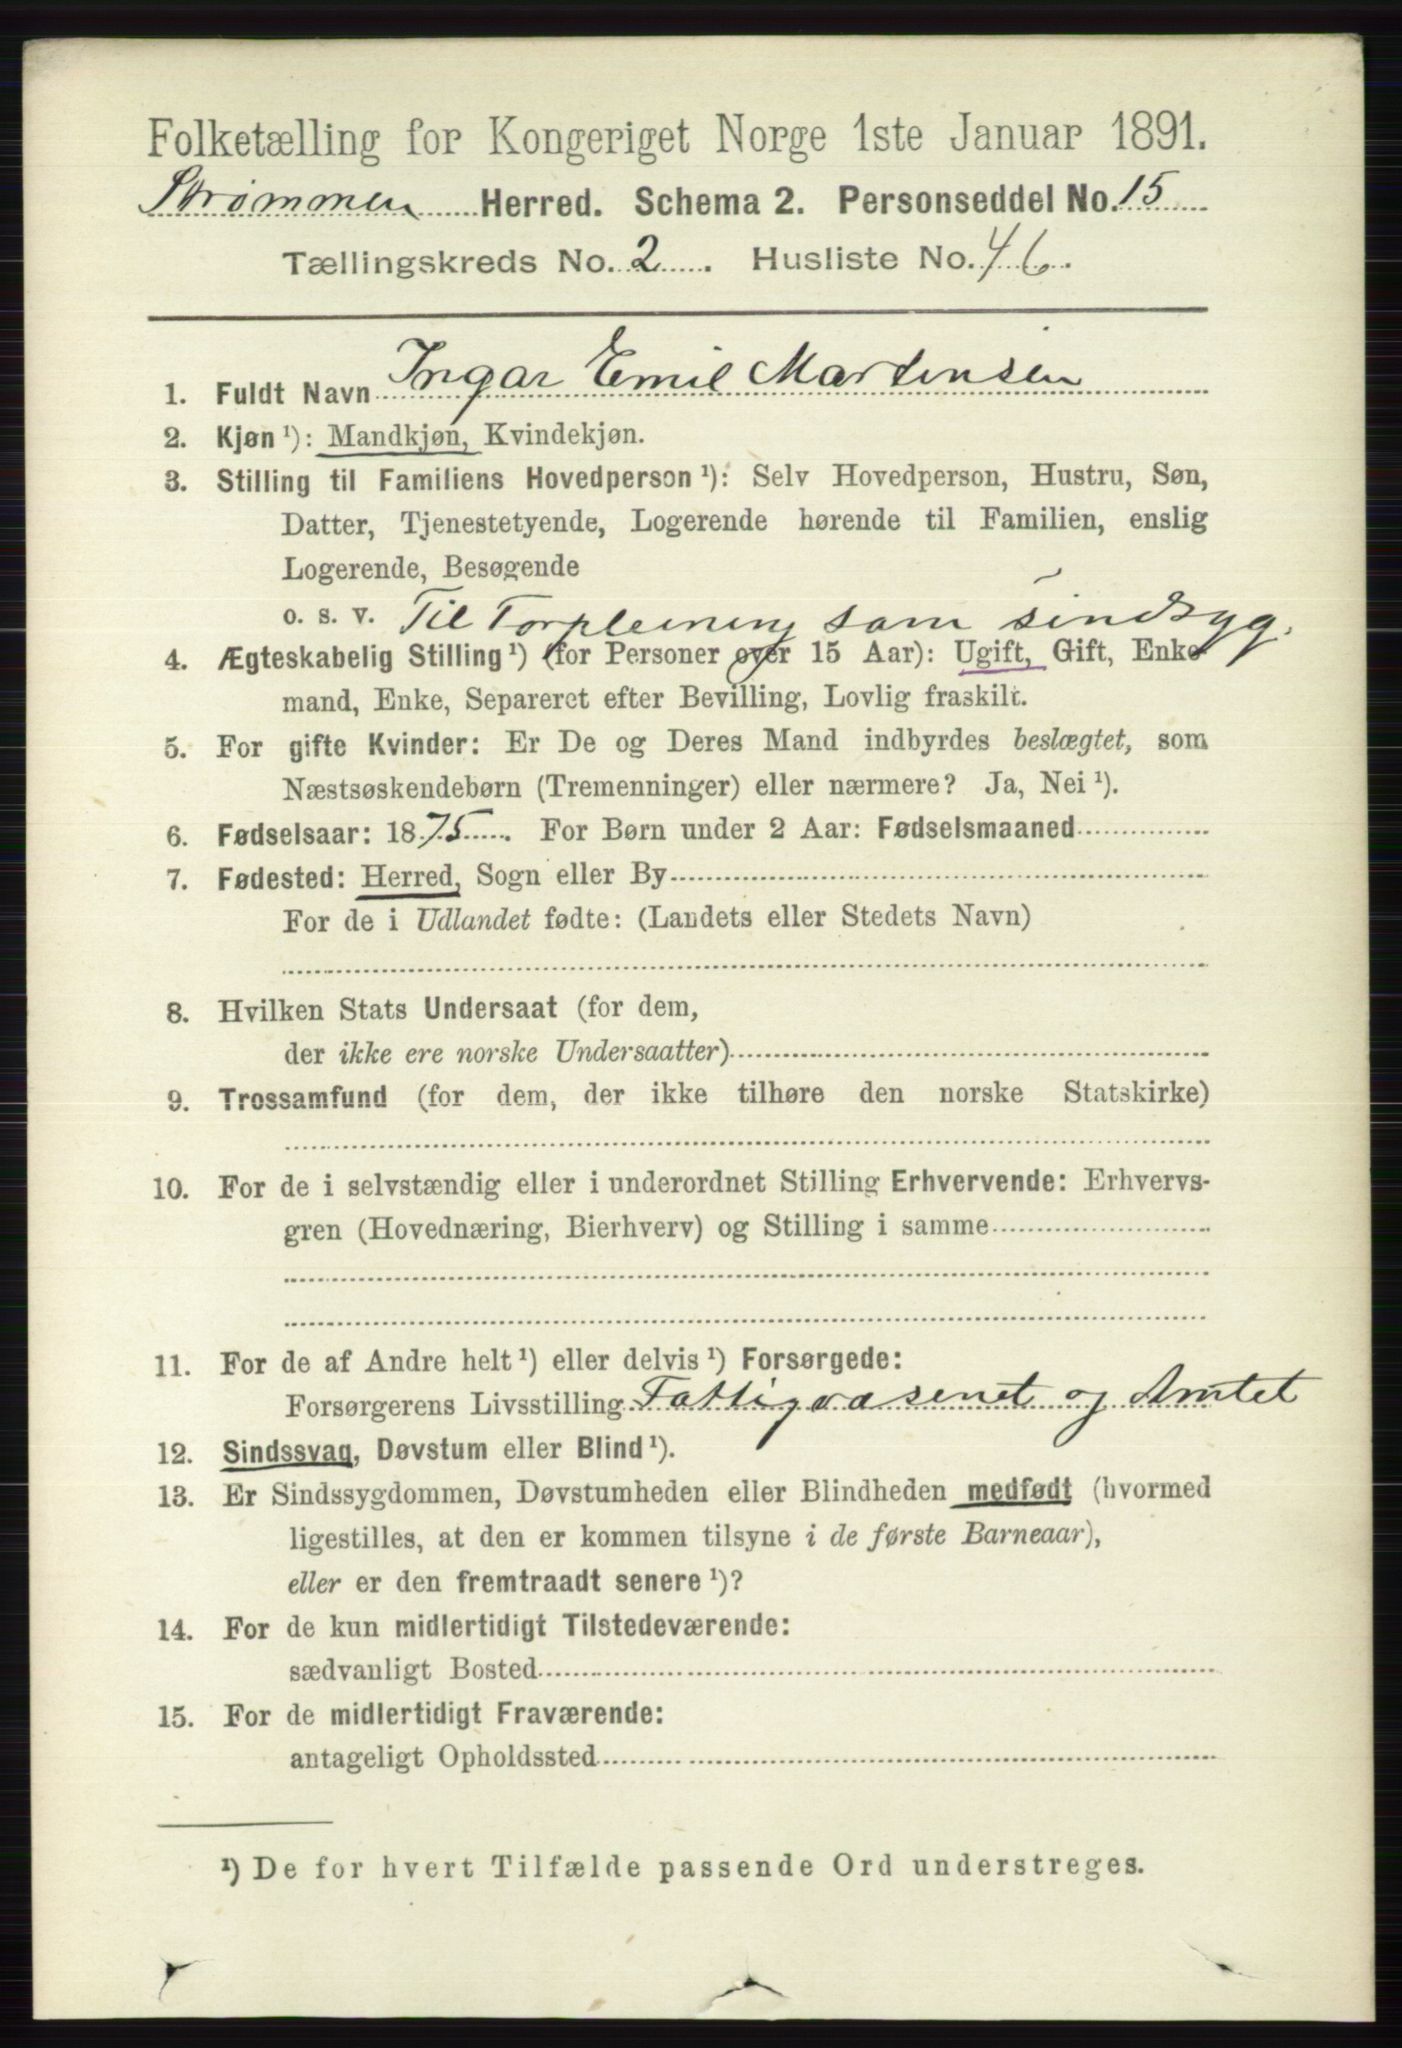 Folketælling for Kongeriget Norge 1ste Januar 1891.
Strømmen Herred. Schema 2. Personseddel No. 15
Tællingskreds No. 2. Husliste No. 46.
1. Fuldt Navn Ingar Emil Martinsen
2. Kjøn ¹): Mandkjøn, Kvindekjøn.
3. Stilling til Familiens Hovedperson ¹): Selv Hovedperson, Hustru, Søn,
Datter, Tjenestetyende, Logerende hørende til Familien, enslig
Logerende, Besøgende
o. s. v. Til Forpleining som sindsyg.
4. Ægteskabelig Stilling ¹) (for Personer over 15 Aar): Ugift, Gift, Enke-
mand, Enke, Separeret efter Bevilling, Lovlig fraskilt.
5. For gifte Kvinder: Er De og Deres Mand indbyrdes beslægtet, som
Næstsøskendebørn (Tremenninger) eller nærmere? Ja, Nei ¹).
6. Fødselsaar: 1875. For Børn under 2 Aar: Fødselsmaaned
7. Fødested: Herred, Sogn eller By
For de i Udlandet fødte: (Landets eller Stedets Navn)
8. Hvilken Stats Undersaat (for dem,
der ikke ere norske Undersaatter)
9. Trossamfund (for dem, der ikke tilhøre den norske Statskirke)
10. For de i selvstændig eller i underordnet Stilling Erhvervende: Erhvervs-
gren (Hovednæring, Bierhverv) og Stilling i samme
11. For de af Andre helt ¹) eller delvis ¹) Forsørgede:
Forsørgerens Livsstilling Fattigvæsenet og Amtet
12. Sindssvag, Døvstum eller Blind ¹).
13. Er Sindssygdommen, Døvstumheden eller Blindheden medfødt (hvormed
ligestilles, at den er kommen tilsyne i de første Barneaar),
eller er den fremtraadt senere ¹)?
14. For de kun midlertidigt Tilstedeværende:
sædvanligt Bosted
15. For de midlertidigt Fraværende:
antageligt Opholdssted
¹) De for hvert Tilfælde passende Ord understreges.